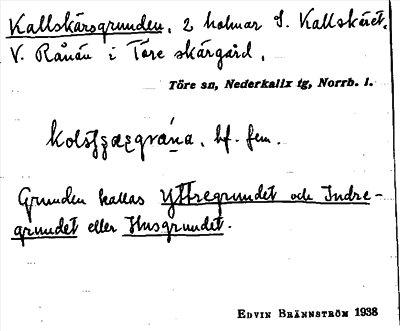 Kallskärsgrunden, 2 holmar S. Kallskäret,
V. Rånön i Töre skärgård.
Töre sn, Nederkalix tg, Norrb. l.
bf. fem.
Grunden kallas Yttregrundet och Indre-
grundet eller Husgrundet.
EDVIN BRÄNNSTRÖM 1938